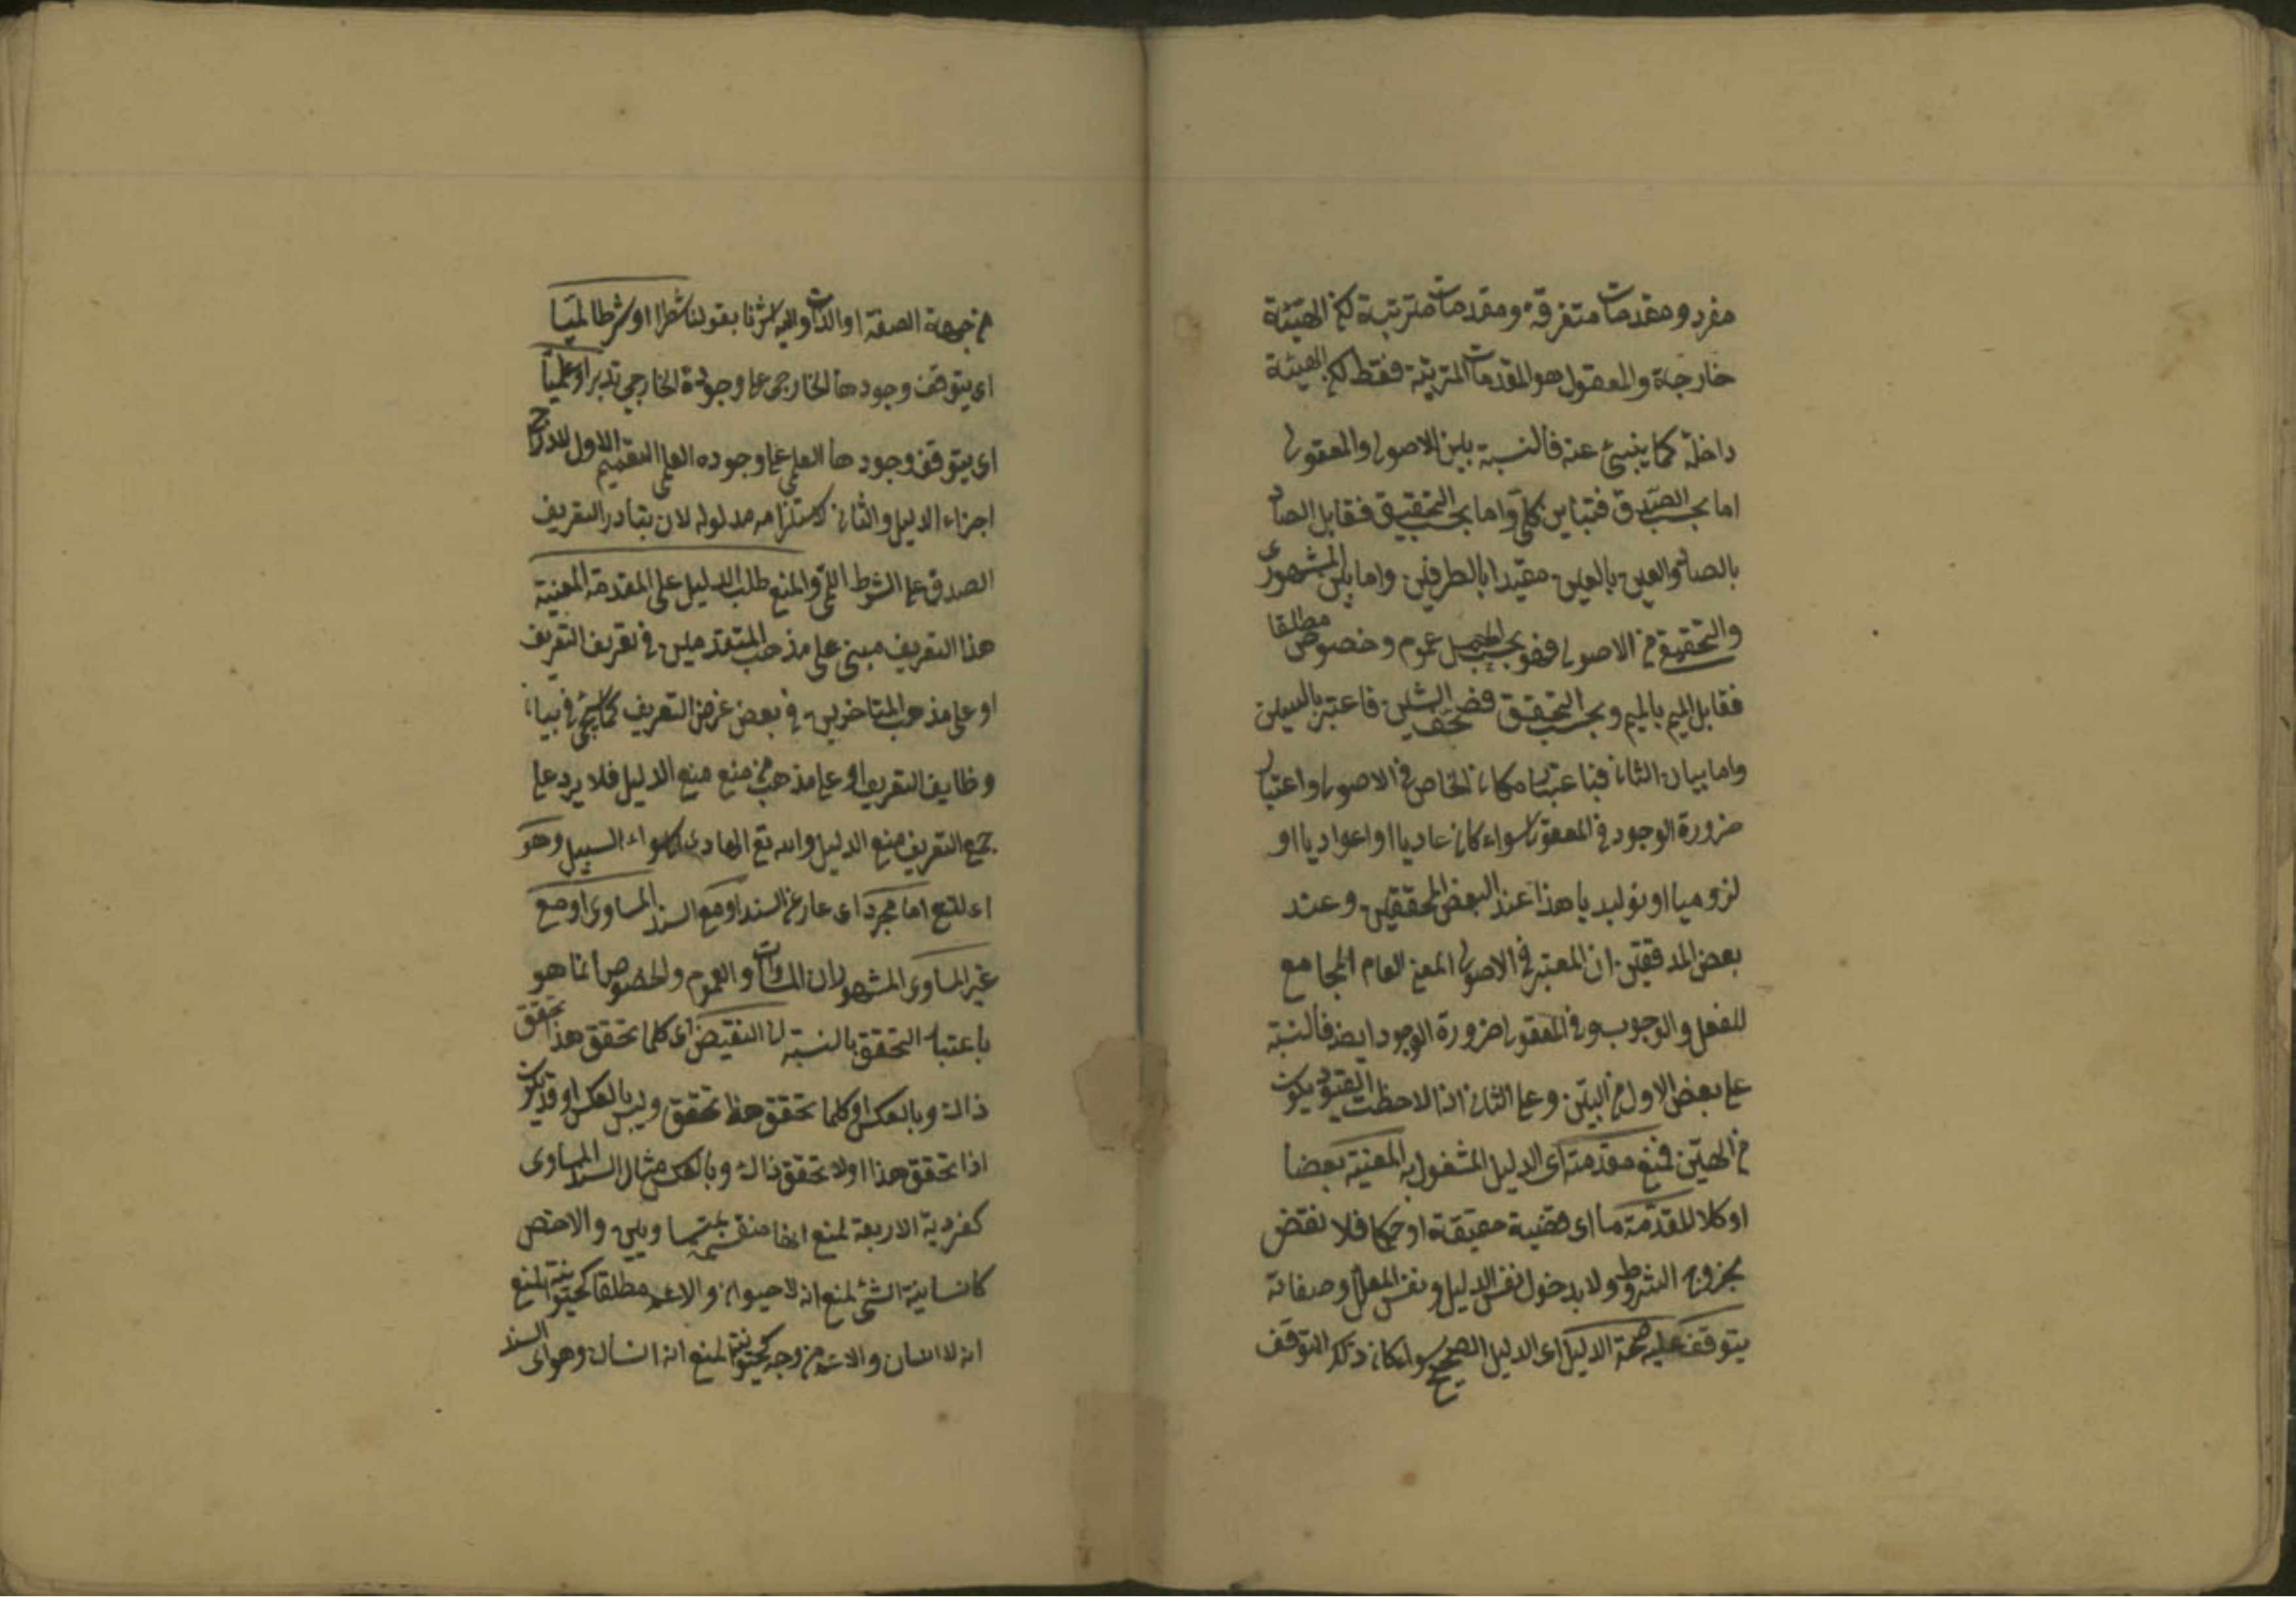 مفرد ومقدمات متفرقة ومقدمات مترتبة لكن الهيئة
خارجة والمعقول هو المقدمات المترتبة فقط لكن الهيئة
داخلة كما ينبئ عنه فالنسبة بين الاصول والمعقول
اما بحسب الصدق فتباين كلى واما بحسب التحقيق فقابل الصاد
بالصاد والعين بالعين مقيدا بالطرفين واما بين المشهورى
والتحقيق فى الاصول فهو بحسب الحمل عموم وخصوص مطلقا
فقابل الميم بالميم وبحسب التحقق فاعتبر بالبين
واما بيان الثانى فباعتبار امكان الخاص فى الاصول واعتبار
ضرورة الوجود فى المعقول سواء كان عاديا او اعداديا او
لزوميا او توليديا هذا عند البعض المحققين وعند
بعض المدققين ان المعتبر فى الاصول المعنى العام المجامع
للفعل والوجوب وفى المعقول ضرورة الوجود ايضا فالنسبة
على بعض الاول من البين وعلى الثانى اذا لاحظت القيود يكون
من الهين فمنع مقدمته اى الدليل المشغول به المعنية بعضا
او كلا للمقدمة ما اى قضية حقيقة او حكما فلا نقض
بخروج الشروط ولا بدخول نفس الدليل ونفس المعلل وصفاته
يتوقف عليه صحة الدليل اى الدليل الصحيح سواء كان ذلك التوقف
من جهة الصفة او الذات واليه اشرنا بقولنا شطرا او شرطا لميا
اى يتوقف وجودها الخارجى على وجوده الخارجى تدبر او علميا
اى يتوقف وجودها العلمى على وجوده العلمى التقسيم الاول لادراج
اجزاء الدليل والثانى لاستلزامه مدلوله لان بتبادر التعريف
الصدق على الشرط اللمى والمنع طلب الدليل على المقدمة المعنية
هذا التعريف مبنى على مذهب المتقدمين فى تعريف التعريف
او على مذهب المتاخرين فى بعض غرض التعريف كما سيجئ فى بيان
وظايف التعريف او على مذهب من منع منع الدليل فلا يرد على
جمع التعريف منع الدليل والله تع الهادى الى سواء السبيل وهو
اى المنع اما مجرد اى عار عن السند او مع السند المساوى او مع
غير المساوى المشهور ان المساوات والعموم والخصوص انما هو
باعتبار التحقق بالنسبة الى النقيض اى كلما تحقق هذا تحقق
ذاك وبالعكس او كلما تحقق هذا تحقق وليس بالعكس او قد يكون
اذا تحقق هذا او لا تحقق ذاك وبالعكس مثال السند المساوى
كفردية الاربعة لمنع انها منقسمة بمتساويين والاخص
كانسانية الشئ لمنع انه لا حيوان والاعم مطلقا كحيوانية لمنع
انه لا انسان والاعم من وجه كحيوانية لمنع انه انسان وهو اى السند